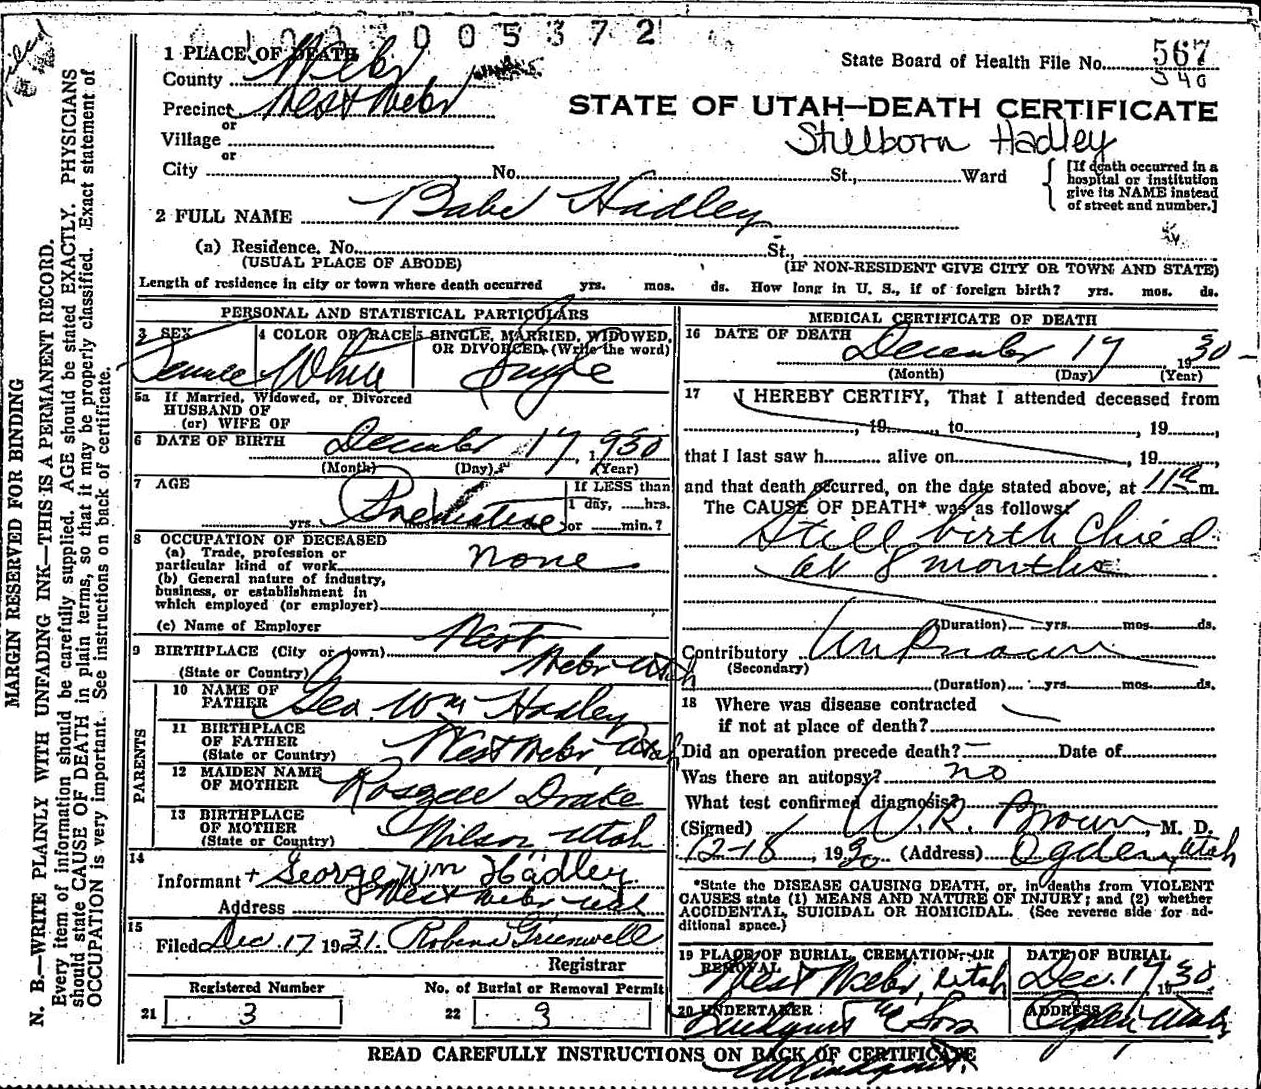 005372
1 PLACE OF DEATH
County Weber
Precinct West Weber
or
Village
or
City No. St., Ward
State Board of Health File No. 567
340
STATE OF UTAH—DEATH CERTIFICATE
Stillborn Hadley
[If death occurred in a
hospital or institution
give its NAME instead
of street and number.]
2 FULL NAME Babe Hadley
(a) Residence. No. St.,
(USUAL PLACE OF ABODE) (IF NON-RESIDENT GIVE CITY OR TOWN AND STATE)
Length of residence in city or town where death occurred yrs. mos. ds. How long in U. S., if of foreign birth? yrs. mos. ds.
PERSONAL AND STATISTICAL PARTICULARS
3 SEX 4 COLOR OR RACE 5 SINGLE, MARRIED, WIDOWED,
OR DIVORCED (Write the word)
Female White Single
5a If Married, Widowed, or Divorced
HUSBAND OF
(or) WIFE OF
6 DATE OF BIRTH December 17, 1930
(Month) (Day) (Year)
7 AGE If LESS than
1 day, hrs.
yrs. mos. Premature or min.?
8 OCCUPATION OF DECEASED
(a) Trade, profession or
particular kind of work none
(b) General nature of industry,
business, or establishment in
which employed (or employer)
(c) Name of Employer
9 BIRTHPLACE (City or town) West
(State or Country) Weber Utah
PARENTS
10 NAME OF
FATHER Geo. Wm Hadley
11 BIRTHPLACE
OF FATHER
(State or Country) West Weber, Utah
12 MAIDEN NAME
OF MOTHER Drake
13 BIRTHPLACE
OF MOTHER
(State or Country) Wilson Utah
14
Informant + George Wm Hadley
Address West Weber Utah
15
Filed Dec 17 1931 Greenwell
Registrar
Registered Number No. of Burial or Removal Permit
21 3 22 9
MEDICAL CERTIFICATE OF DEATH
16 DATE OF DEATH December 17 1930
(Month) (Day) (Year)
17 I HEREBY CERTIFY, That I attended deceased from
, 19 , to , 19 ,
that I last saw h alive on , 19 ,
and that death occurred, on the date stated above, at 11 a m.
The CAUSE OF DEATH* was as follows:
Still birth Child
at 8 months
(Duration) yrs. mos. ds.
Contributory Unknown
(Secondary)
(Duration) yrs. mos. ds.
18 Where was disease contracted
if not at place of death?
Did an operation precede death? — Date of
Was there an autopsy? no
What test confirmed diagnosis?
(Signed) W. R. Brown, M. D.
12-18, 1930 (Address) Ogden, Utah
*State the DISEASE CAUSING DEATH, or, in deaths from VIOLENT
CAUSES state (1) MEANS AND NATURE OF INJURY; and (2) whether
ACCIDENTAL, SUICIDAL OR HOMICIDAL. (See reverse side for ad-
ditional space.)
19 PLACE OF BURIAL, CREMATION, OR
REMOVAL DATE OF BURIAL
West Weber, Utah Dec. 17 1930
20 UNDERTAKER ADDRESS
Lindquist & Sons Ogden Utah
READ CAREFULLY INSTRUCTIONS ON BACK OF CERTIFICATE
MARGIN RESERVED FOR BINDING
N. B.—WRITE PLAINLY WITH UNFADING INK—THIS IS A PERMANENT RECORD.
Every item of information should be carefully supplied. AGE should be stated EXACTLY. PHYSICIANS
should state CAUSE OF DEATH in plain terms, so that it may be properly classified. Exact statement of
OCCUPATION is very important. See instructions on back of certificate.